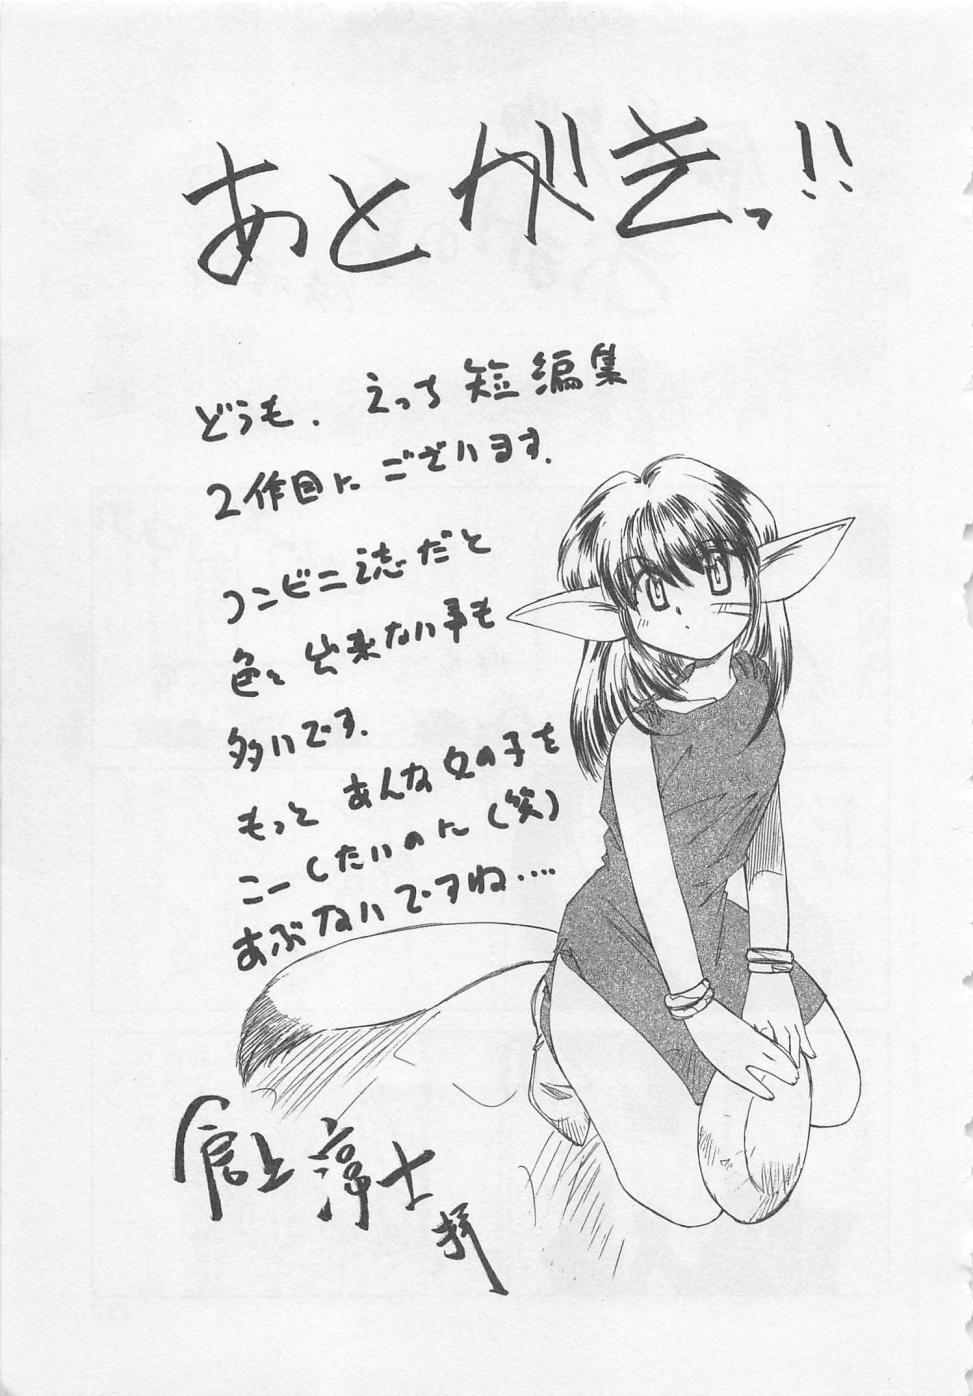 あとがきっ!!
どうも、えっち短編集
2作目にございます。
コンビニ誌だと
色々出来ない事も
多いです。
もっとあんな女の子を
こーしたいのに(笑)
あぶないですね‥‥
倉上淳士
拝